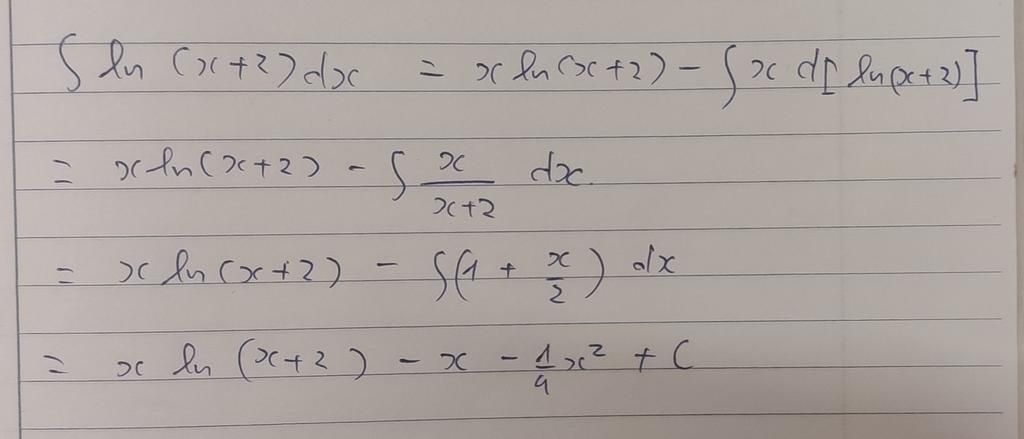 ∫ ln (x+2) dx = x ln(x+2) - ∫ x d[ ln(x+2)]
= x ln(x+2) - ∫ x/(x+2) dx.
= x ln(x+2) - ∫(1 + x/2) dx
= x ln (x+2) - x - 1/4 x² + C